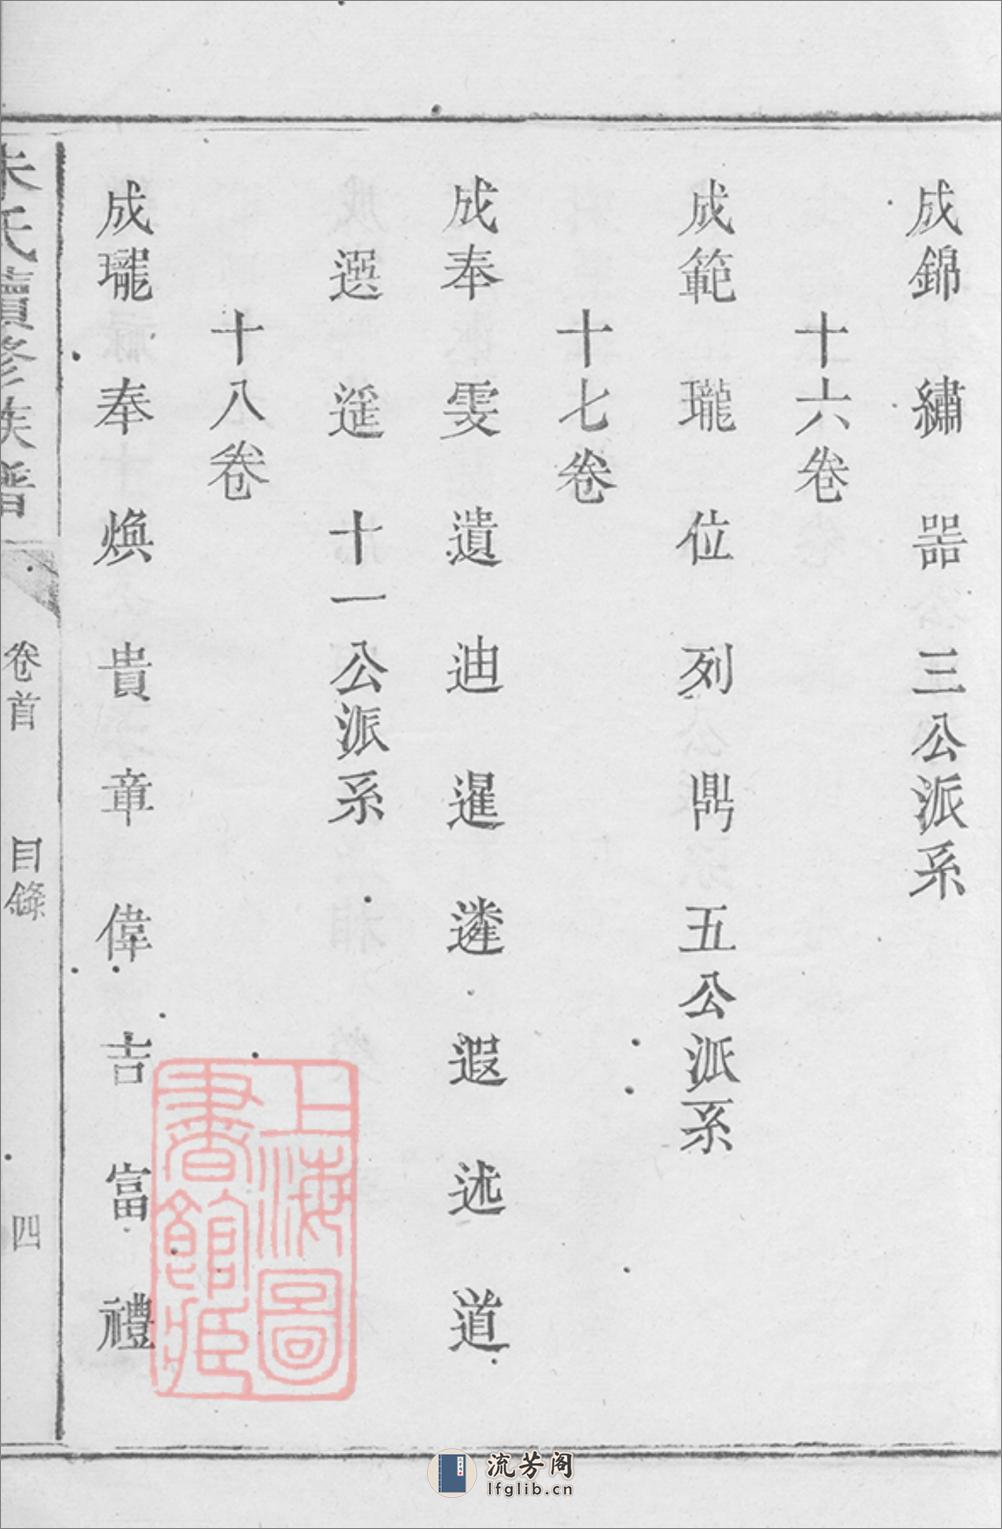 成錦 繡 器 三公派系
十六卷
成範 瓏 位 列 鼎 五公派系
十七卷
成奉 雯 遺 迪 暹 遴 遐 述 道
選 遥 十一公派系
十八卷
成瓏 奉 煥 貴 章 偉 吉 富 禮
朱氏續修族譜 卷首 目錄 四
上海圖書館藏
流芳阁
lfglib.cn